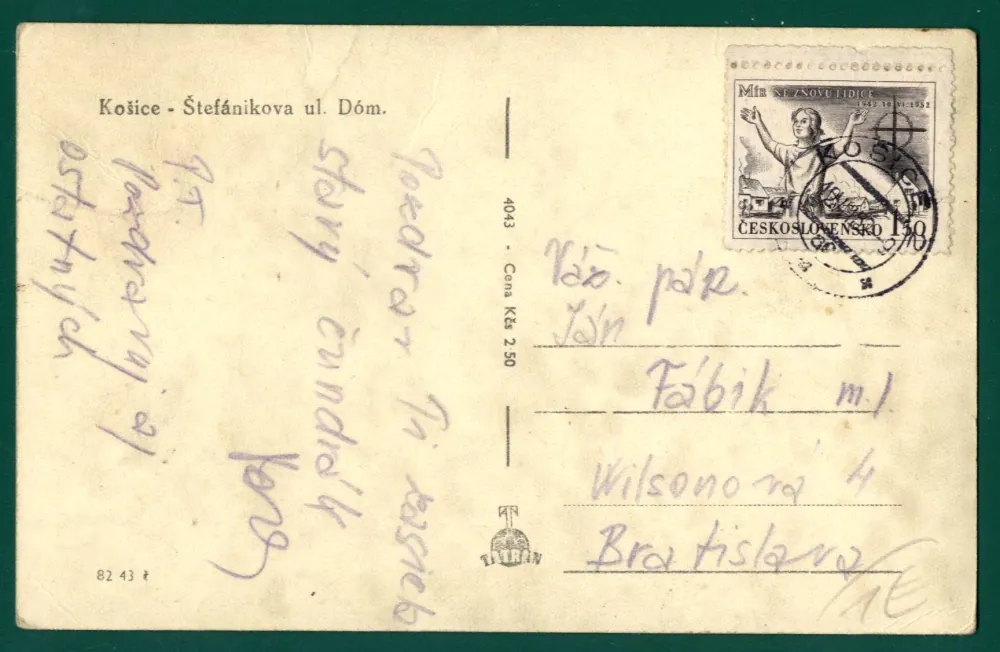 Košice - Štefánikova ul. Dóm.
Pozdrav Ti zasiela
starý čundrák
P.T.
Pozdravuj aj
ostatných
82 43 ł
4043 - Cena Kčs 2·50
TATRAN
Mír NE ZNOVU LIDICE
1942 10.VI. 1952
ČESKOSLOVENSKO 1,50
KOŠICE
Váž. pán.
Ján
Fábik ml.
Wilsonova 4
Bratislava
1€